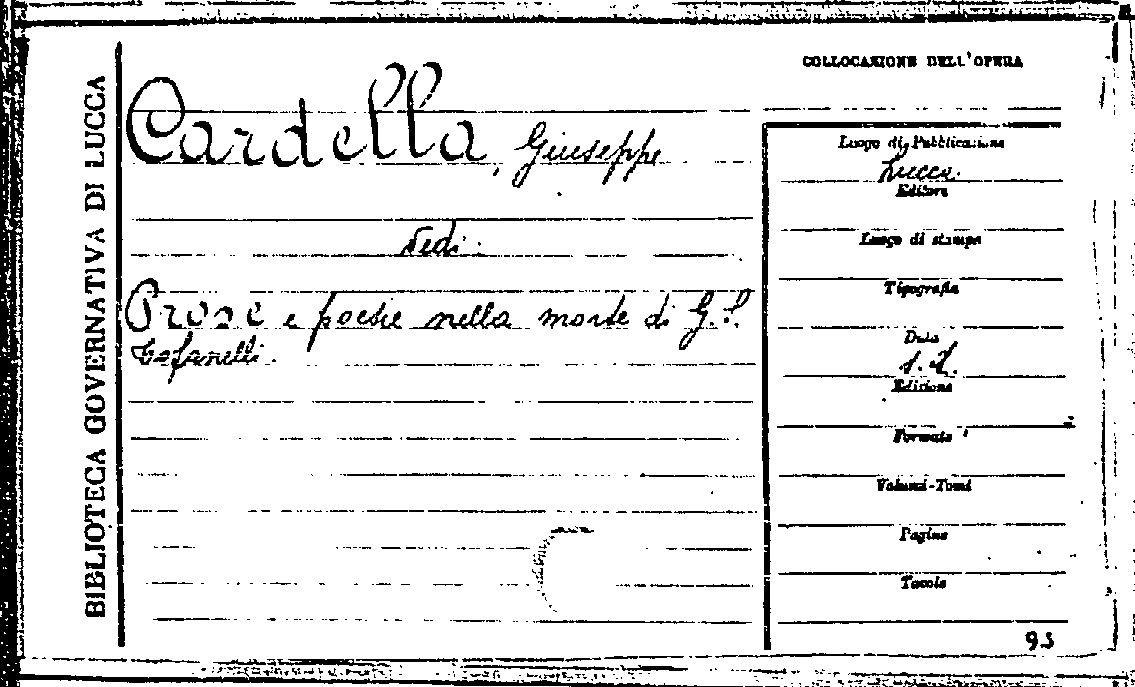 BIBLIOTECA GOVERNATIVA DI LUCCA
COLLOCAZIONE DELL'OPERA
Cardella, Giuseppe
Vedi:
Prose e poesie nella morte di G. P.
Tofanelli.
Luogo di Pubblicazione
Lucca.
Editore
Luogo di stampa
Tipografia
Data
Edizione
Formato
Volumi-Tomi
Pagine
Tavole
93